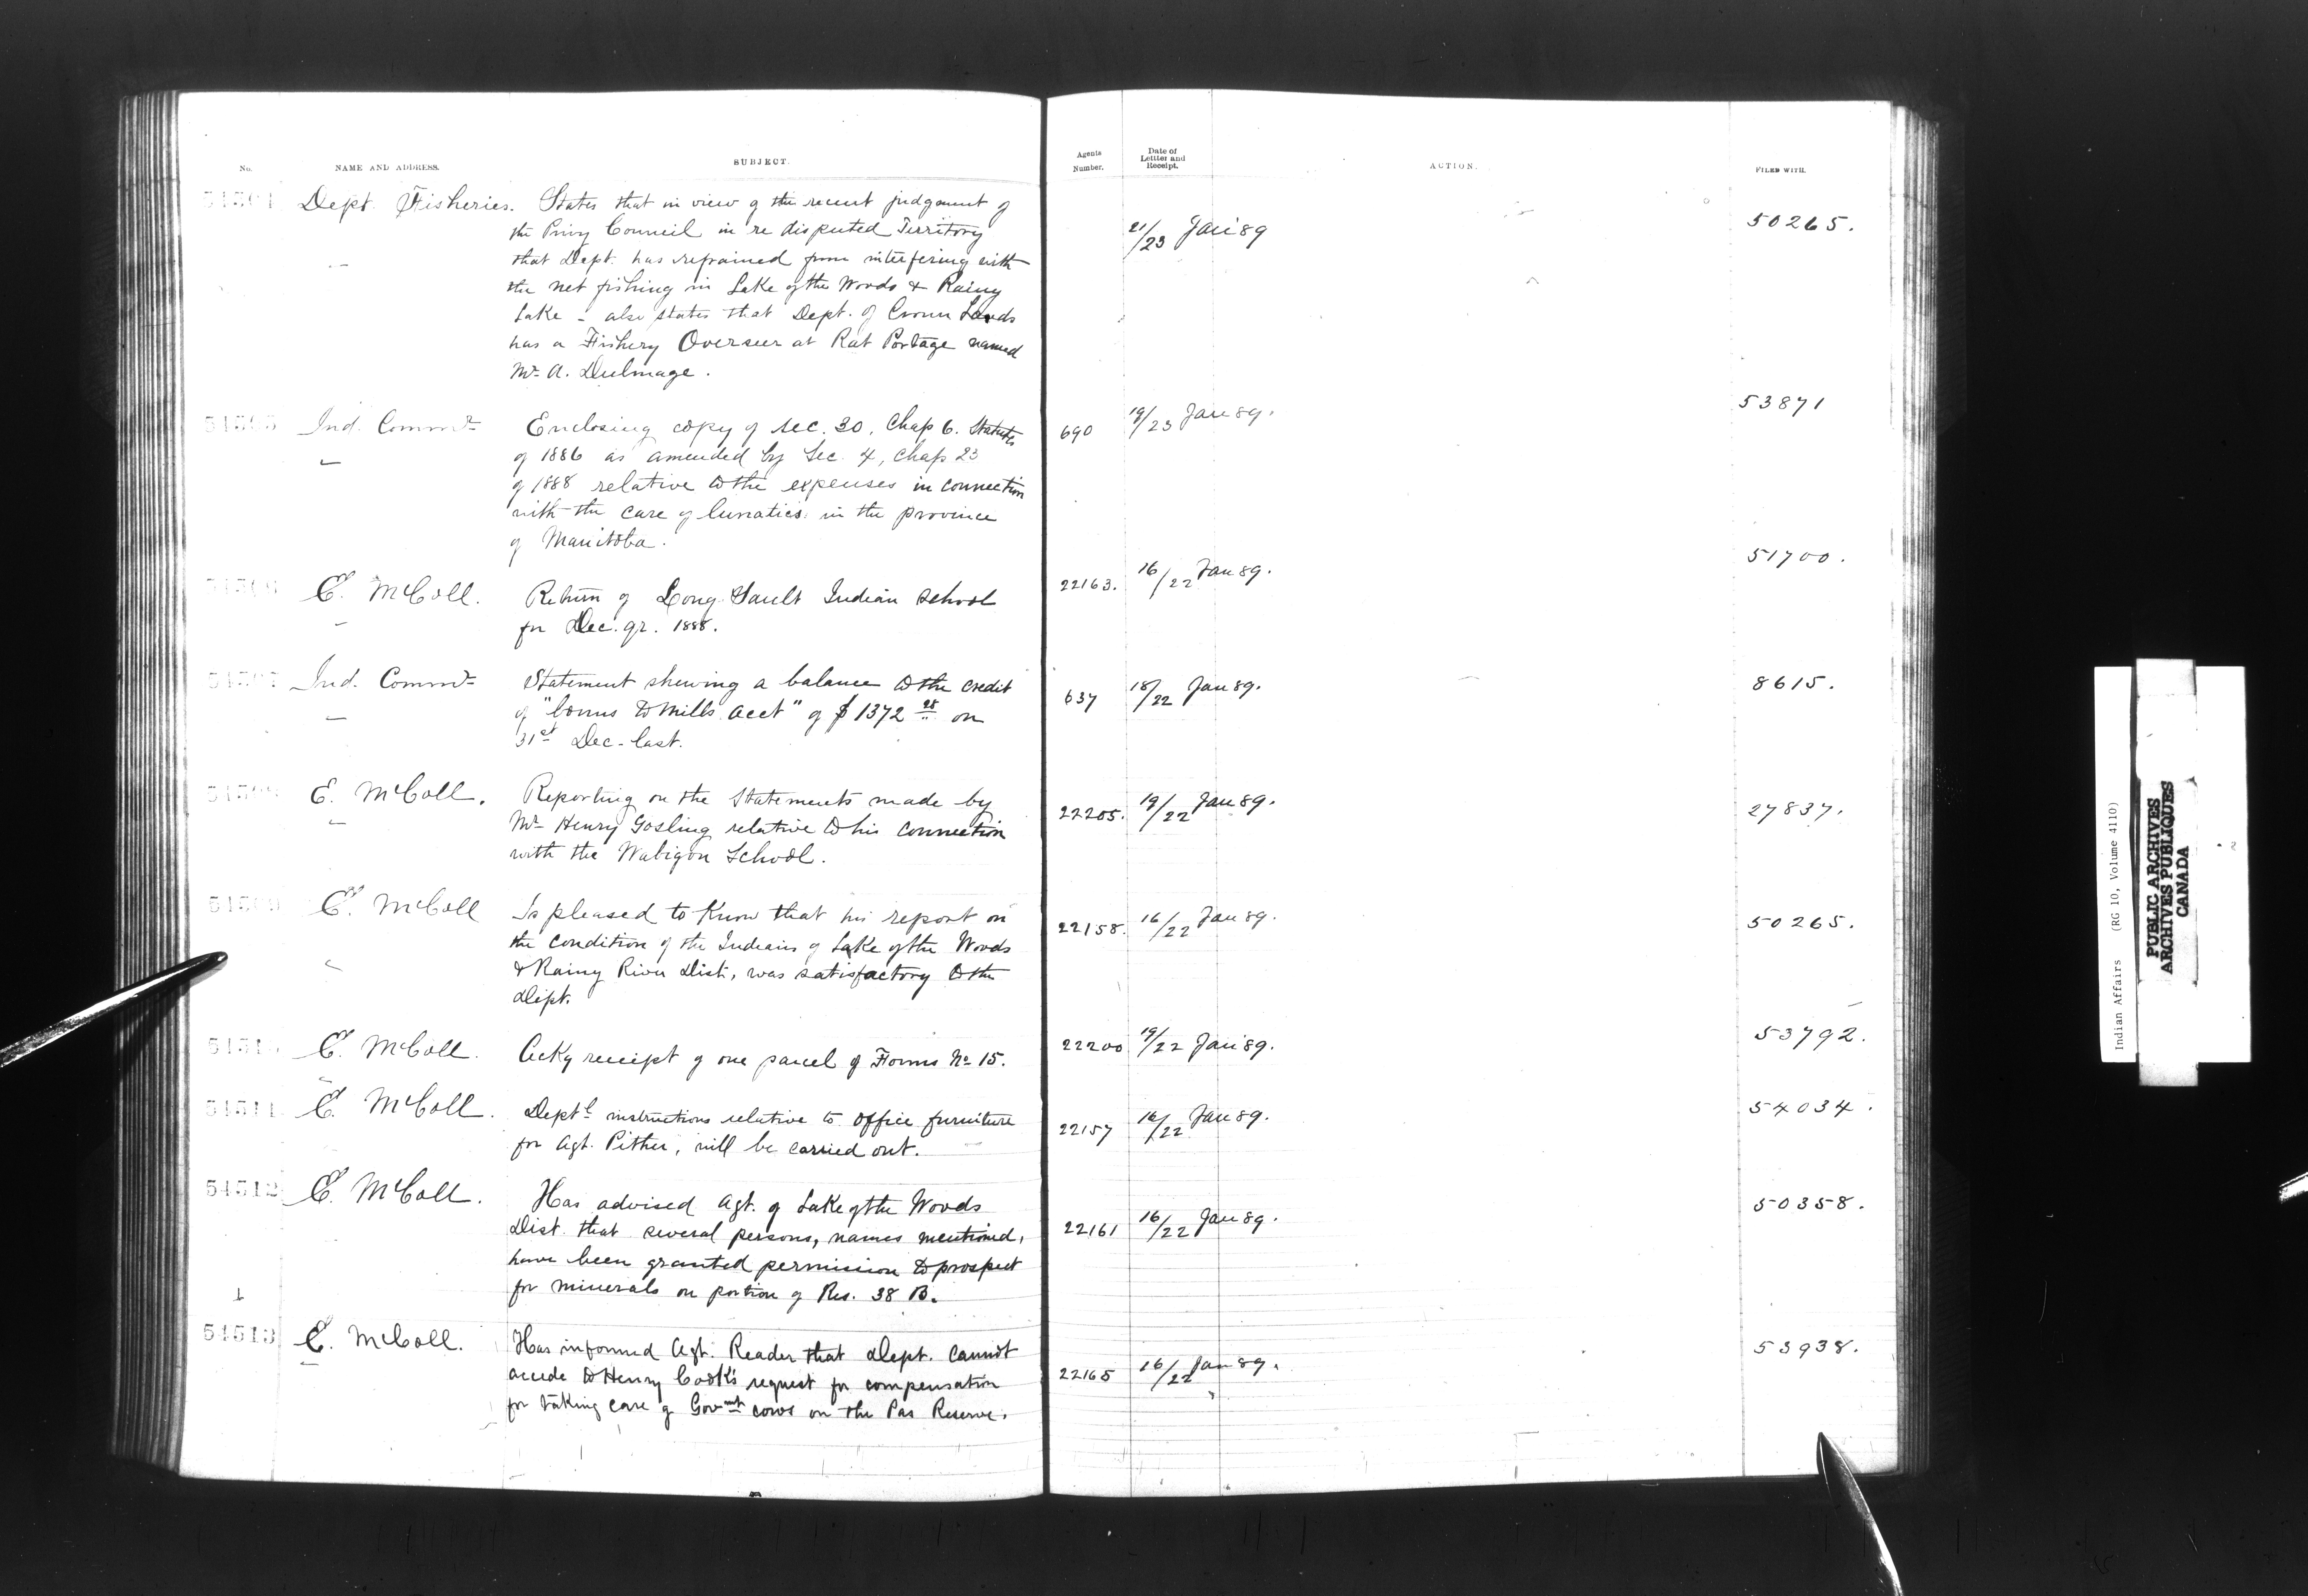 No. NAME AND ADDRESS. SUBJECT. Agents Number. Date of Letter and Receipt. ACTION. FILED WITH.
54504 Dept. Fisheries. States that in view of the recent judgment of
the Privy Council in re disputed Territory
that Dept. has refrained from interfering with
the net fishing in Lake of the Woods & Rainy
Lake - also states that Dept. of Crown Lands
has a Fishery Overseer at Rat Portage named
Mr. A. Dulmage.
21/23 Jan '89 50265.
54505 Ind. Commr. Enclosing copy of Sec. 30, Chap 6. Statutes
of 1886 as amended by Sec. 4, Chap 23
of 1888 relative to the expenses in connection
with the care of lunatics in the province
of Manitoba.
690 19/23 Jan 89. 53871
54506 E. McColl. Return of Long Sault Indian School
for Dec. qr. 1888.
22163. 16/22 Jan 89. 51700.
54507 Ind. Commr. Statement shewing a balance to the credit
of "bonus to Mills Acct" of $1372 28 on
31st Dec. last.
637 18/22 Jan 89. 8615.
54508 E. McColl. Reporting on the Statements made by
Mr. Henry Gosling relative to his connection
with the Wabigon School.
22205. 19/22 Jan 89. 27837.
54509 E. McColl Is pleased to know that his report on
the condition of the Indians of Lake of the Woods
& Rainy River Dist., was satisfactory to the
Dept.
22158. 16/22 Jan 89. 50265.
54510 E. McColl. Ackg receipt of one parcel of Forms No 15.
22200 19/22 Jan '89. 53792.
54511 E. McColl. Deptl instructions relative to office furniture
for Agt. Pither, will be carried out.
22157 16/22 Jan 89. 54034.
54512 E. McColl. Has advised Agt. of Lake of the Woods
Dist. that several persons, names mentioned,
have been granted permission to prospect
for minerals on portion of Res. 38 B.
22161 16/22 Jan 89. 50358.
54513 E. McColl. Has informed Agt. Reader that Dept. cannot
accede to Henry Cook's request for compensation
for taking care of Govmt cows on the Pas Reserve.
22165 16/22 Jan 89. 53938.
Indian Affairs (RG 10, Volume 4110)
PUBLIC ARCHIVES
ARCHIVES PUBLIQUES
CANADA